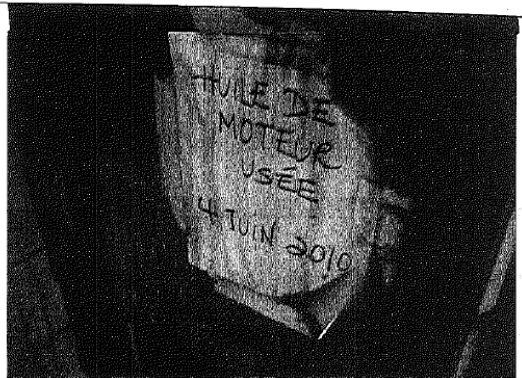 HUILE DE
MOTEUR
USÉE
4 JUIN 2010